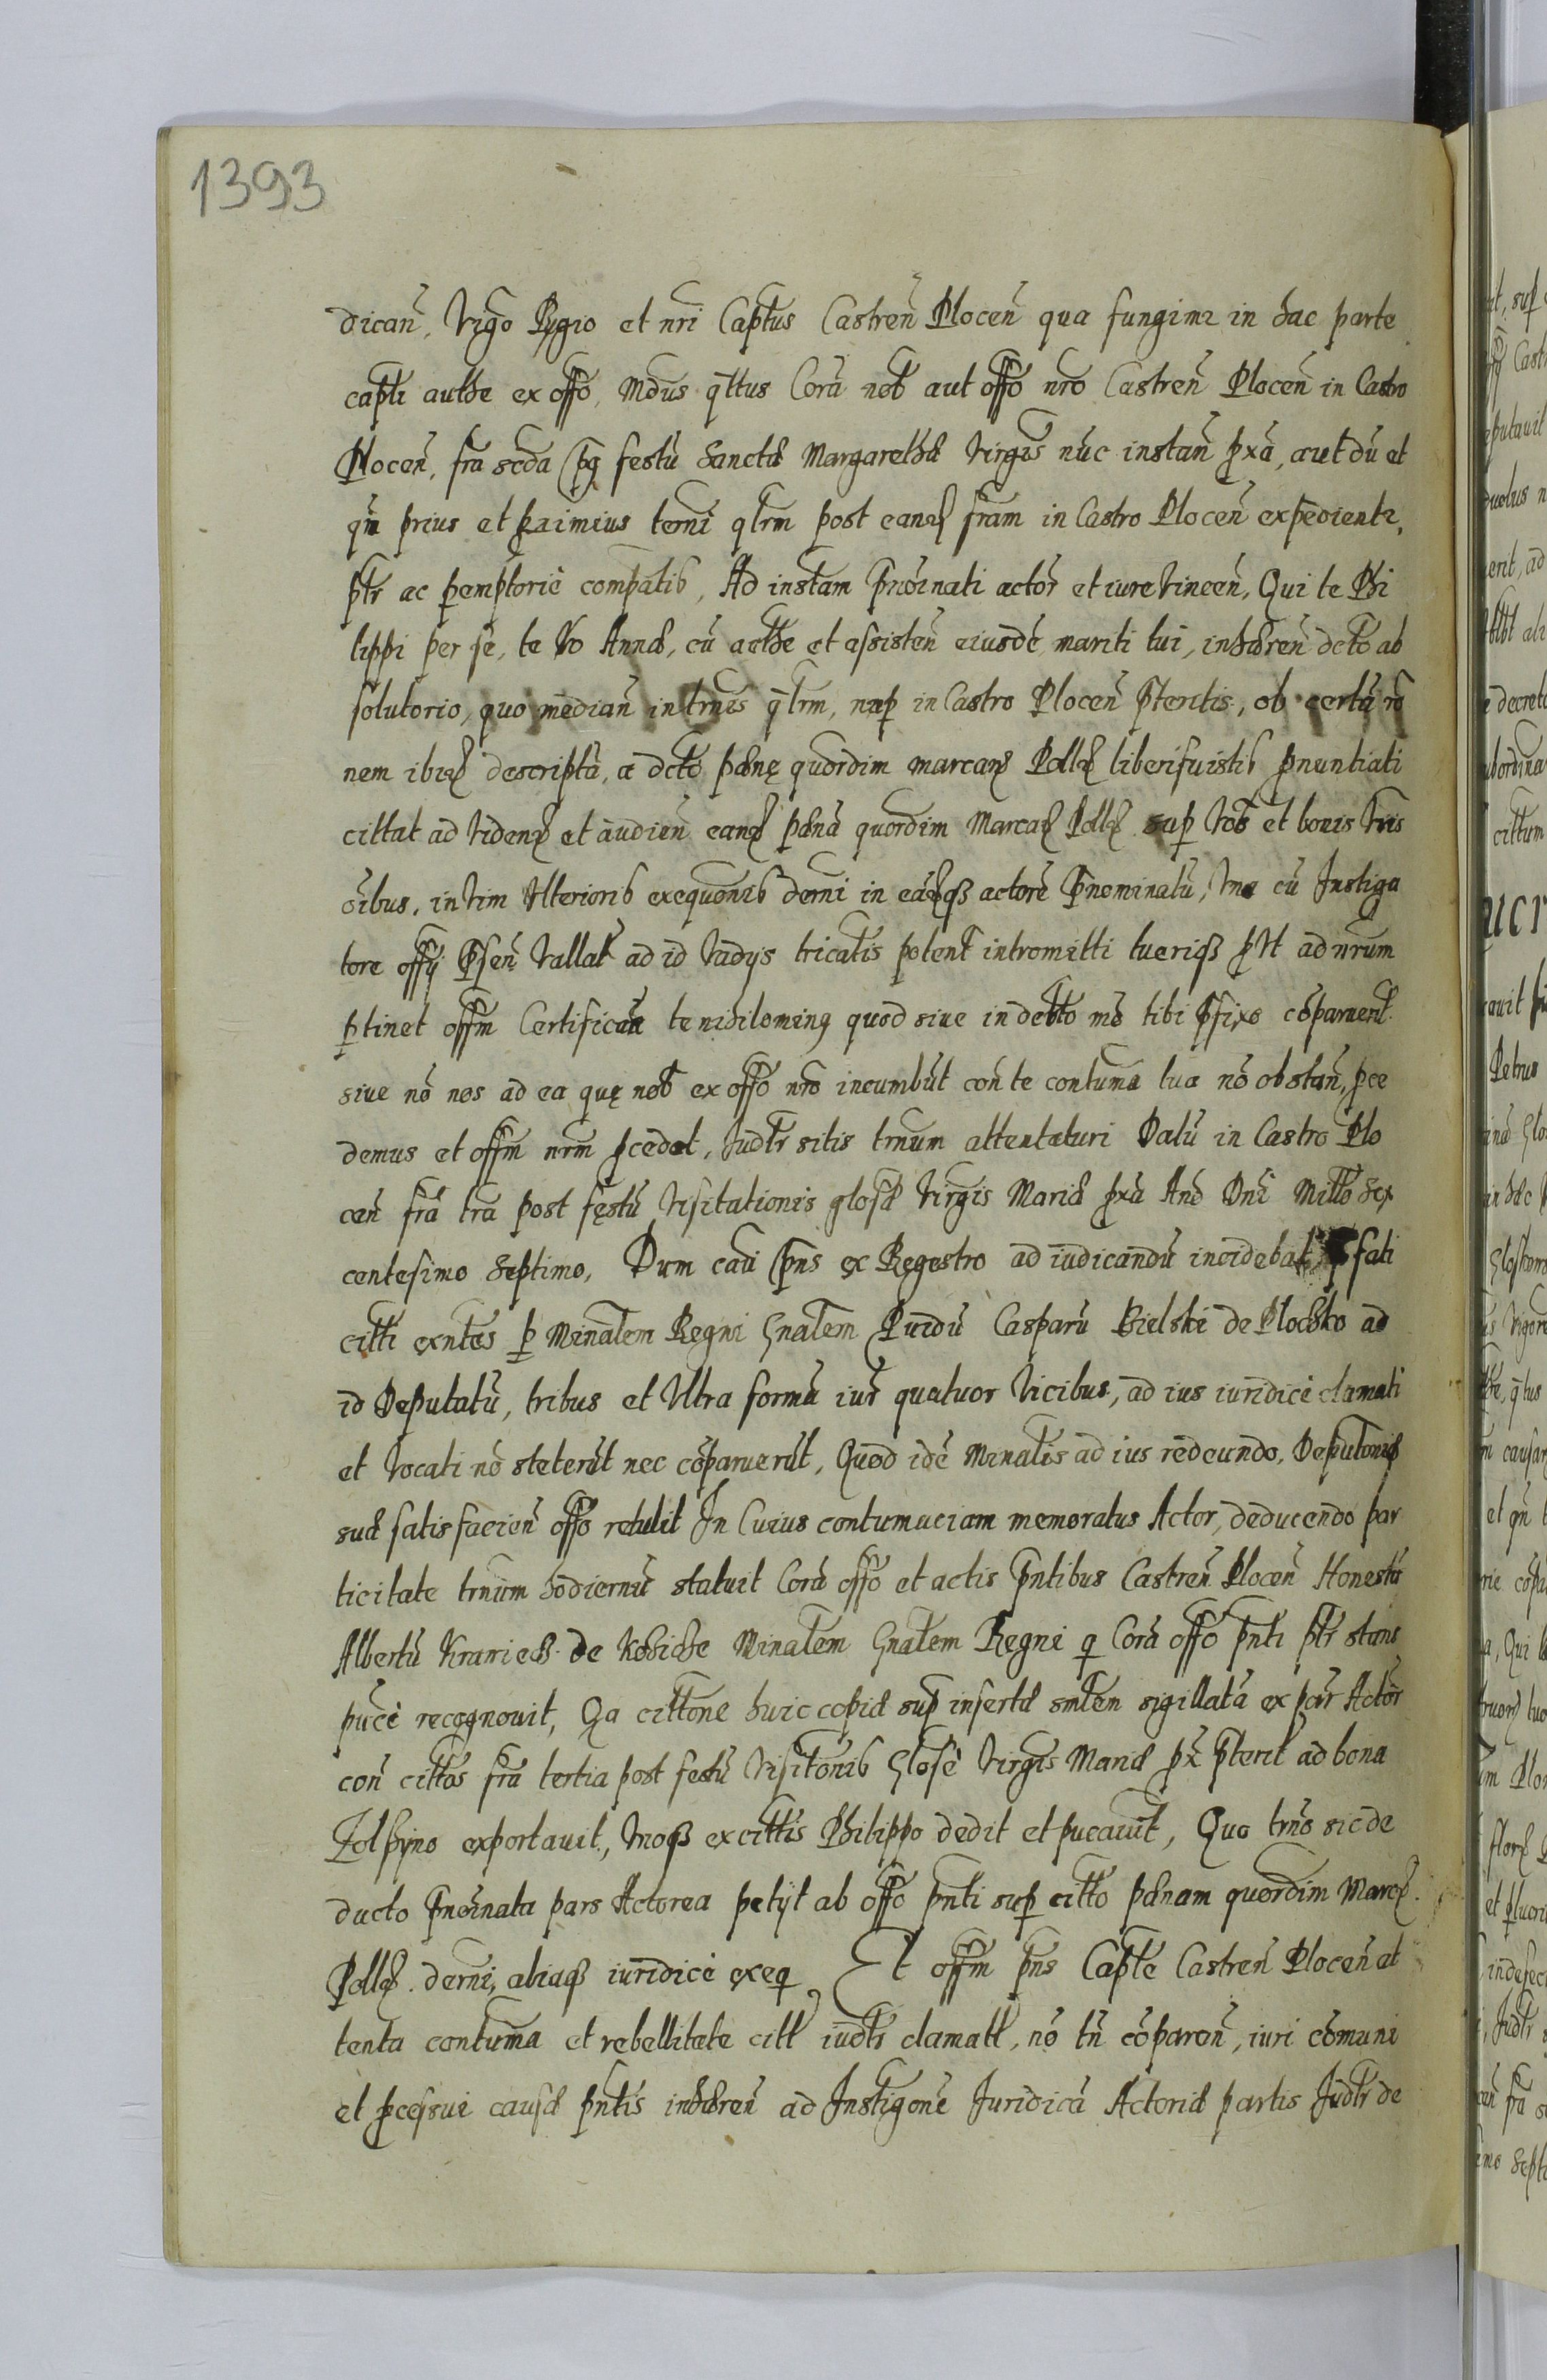 1393
dican̄, Vigo Regio et nr̄i Captus Castren̄ Plocen̄ qua fungimr in hac parte
captli authe ex offo, Mdus qttus Corā nob aut offo nr̄o Castren̄ Plocen̄ in Castro
Plocen̄, fra scda pq festū Sanctæ Margarethæ Virgis nūc instan̄ pxā, aut dū et
qn̄ prius et primius termi qlrm post eand fram in Castro Plocen̄ expedientr,
ptr ac pemptorie compatis, Ad instam Prnoīnati actor̄ et iure vincen̄, Qui te Phi
lippi per se, te Vo Annæ, cū acthe et assisten̄ eiusdē mariti tui, inhæren̄ dcto ab
solutorio, quo median̄ in trmis qlrm, nup in Castro Plocen̄ pteritis, ob certā ro
nem ibid descriptā, a dcto pænę quordim marcar Pollr liberi fuistis pnuntiati
cittat ad viden et audien̄ eand pænā quordim Marcar Pollr sup Vos et bonis Vris
oībus, in vim Ulterioris exequonis derni in eadqȝ actorē Pnominatū, Vna cū Instiga
tore offij Psen̄ Vallat ad id Vadys tricatis potent intromitti tueriqȝ put ad nrum
ptinet offm Certifican te nihilominq quod siue in detto mō tibi pfixo cōparuerit
siue nō nos ad ea quę nob ex offo nrō incumbūt con̄ te contuma tua nō obstan̄, pce
demus et offm nrm pcedet, Judtr sitis trnum attentaturi Datū in Castro Plo
cen̄ frā tra post festū Visitationis glosæ Virgis Mariæ pxā Anō Dnī Millo Sex
centesimo Septimo, Dum cau pns ex Regestro ad iudicandū incidebat, pfati
citti exntes p Minalem Regni Gnalem Pvidū Casparū Bielski de Plocsko ad
id Deputatū, tribus et Ultra formā iur̄ quatuor Vicibus, ad ius iuridicè clamati
et Vocati nō steterūt nec cōparuerūt, Quod idē Minalis ad ius redeundo, Deputonis
suæ satisfacien̄ offo retulit In Cuius contumaciam memoratus Actor, deducendo par
ticitate trnum hodiernū statuit Corā offo et actis pntibus Castren̄ Plocen̄ Honestū
Albertū de Minalem Gnalem Regni q Corā offo pnti ptr stans
pucè recognouit, Qa cittone huic copiæ sup insertæ smlem sigillatā ex par̄ Actor
con̄ cittos frā tertia post festū Visitonis Glosè Virgis Mariæ px pterit ad bona
exportauit, Vnoqȝ ex cittis Philippo dedit et pucauit, Quo trno sic de
ducto Pnoīnata pars Actorea petijt ab offo pnti sup citto pænam quordim Marcr
Pollr derni, aliaqȝ iuridicè exeq, Et offm pns Capte Castren̄ Plocen̄ at
tenta contuma et rebellitate citt iudtr clamatt, nō tn̄ cōparen̄, iuri cōmuni
et pcessui causæ pntis inhæren̄ ad Instigonē Juridicā Actoriæ partis Judtr de